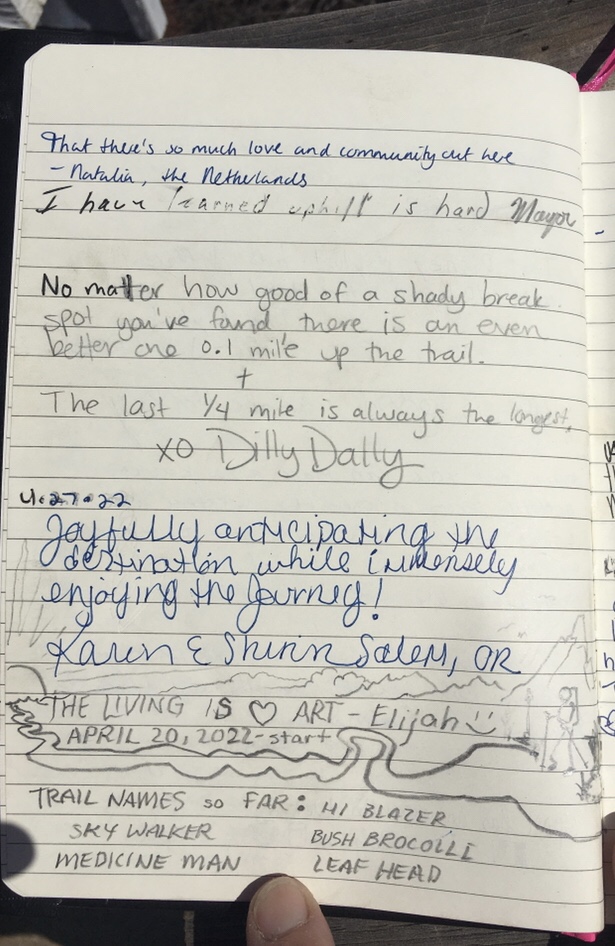 That there's so much love and community out here
- Natalia, the Netherlands
I have learned uphill is hard Mayor
No matter how good of a shady break
spot you've found, there is an even
better one 0.1 mile up the trail.
+
The last 1/4 mile is always the longest.
xo Dilly Dally
4.27.22
Joyfully anticipating the
destination while immensely
enjoying the Journey!
Karen & Shirin Salem, OR
THE LIVING IS ♡ ART - Elijah :)
APRIL 20, 2022 - start
TRAIL NAMES so FAR: HI BLAZER
SKY WALKER BUSH BROCOLLI
MEDICINE MAN LEAF HEAD